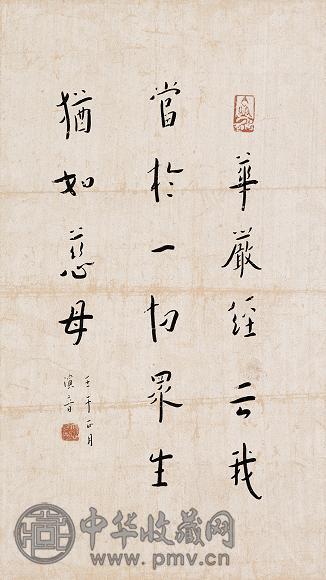 華嚴經云我
當於一切眾生
猶如慈母
壬午正月
演音
中华收藏网
www.pmv.cn